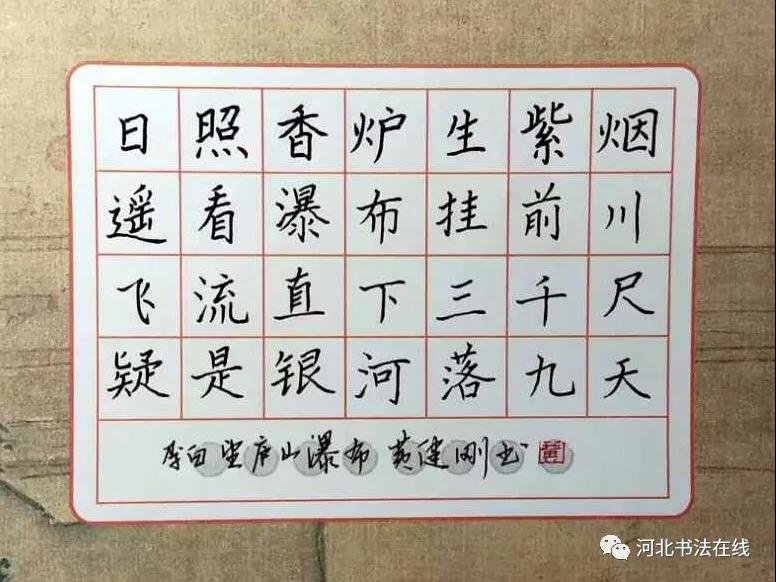 日照香炉生紫烟
遥看瀑布挂前川
飞流直下三千尺
疑是银河落九天
李白望庐山瀑布 黄建刚书
河北书法在线